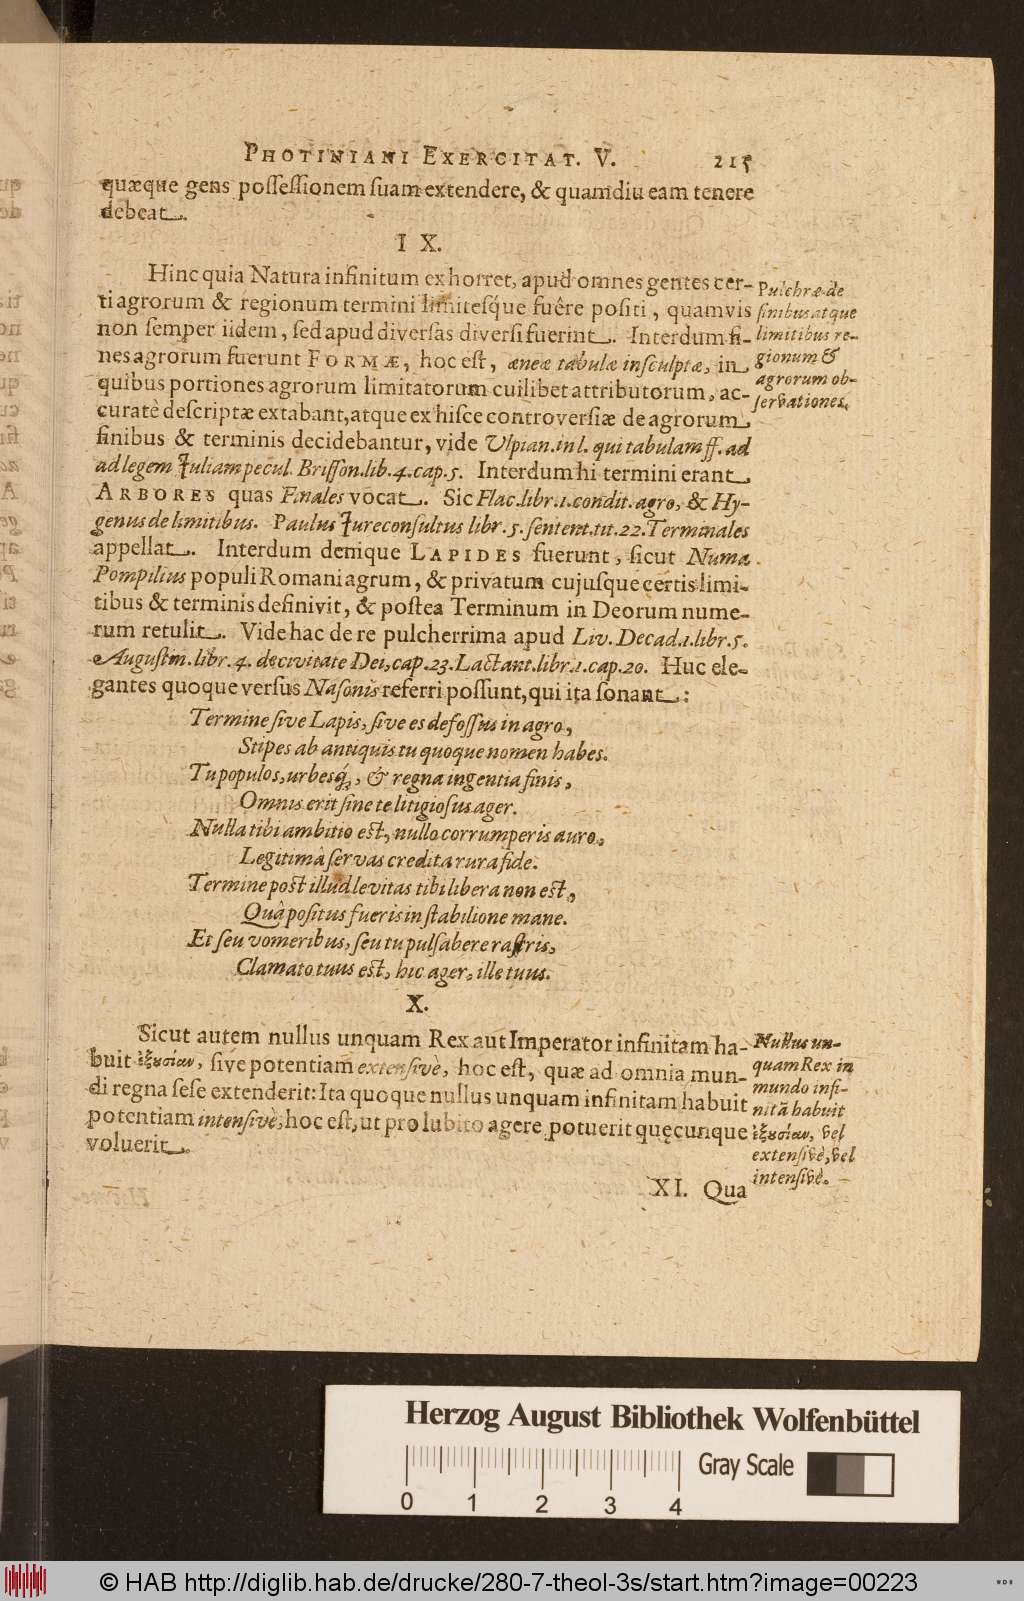 PHOTINIANI EXERCITAT. V. 215
quæque gens possessionem suam extendere, & quamdiu eam tenere
debeat.
IX.
Hinc quia Natura infinitum exhorret, apud omnes gentes cer-
ti agrorum & regionum termini limitesq́ue fuêre positi, quamvis
non semper iidem, sed apud diversas diversi fuerint. Interdum fi-
nes agrorum fuerunt FORMÆ, hoc est, æneæ tabulæ insculptæ, in
quibus portiones agrorum limitatorum cuilibet attributorum, ac-
curatè descriptæ extabant, atque ex hisce controversiæ de agrorum
finibus & terminis decidebantur, vide Ulpian. in l. qui tabulam ff. ad
ad legem Juliam pecul. Brisson. lib. 4. cap. 5. Interdum hi termini erant
ARBORES quas Finales vocat. Sic Flac. libr. 1. condit. agro, & Hy-
genus de limitibus. Paulus Jureconsultus libr. 5. sentent. tit. 22. Terminales
appellat. Interdum denique LAPIDES fuerunt, sicut Numa
Pompilius populi Romani agrum, & privatum cujusque certis limi-
tibus & terminis definivit, & postea Terminum in Deorum nume-
rum retulit. Vide hac de re pulcherrima apud Liv. Decad. 1. libr. 5.
Augustin. libr. 4. de civitate Dei, cap. 23. Lactant. libr. 1. cap. 20. Huc ele-
gantes quoque versus Nasonis referri possunt, qui ita sonant:
Termine sive Lapis, sive es defossus in agro,
Stipes ab antiquis tu quoque nomen habes.
Tu populos, urbesq́;, & regna ingentia finis,
Omnis erit sine te litigiosus ager.
Nulla tibi ambitio est, nullo corrumperis auro,
Legitimâ servas credita rura fide.
Termine post illud levitas tibi libera non est,
Quâ positus fueris in stabilione mane.
Et seu vomeribus, seu tu pulsabere rastris,
Clamato tuus est, hic ager, ille tuus.
X.
Sicut autem nullus unquam Rex aut Imperator infinitam ha-
buit ἐξουσίαν, sive potentiam extensivè, hoc est, quæ ad omnia mun-
di regna sese extenderit: Ita quoque nullus unquam infinitam habuit
potentiam intensivè, hoc est, ut pro lubito agere potuerit quęcunque
voluerit.
XI. Qua
Pulchræ de
finibus atque
limitibus re-
gionum &
agrorum ob-
servationes.
Nullus un-
quam Rex in
mundo infi-
nitā habuit
ἐξουσίαν, vel
extensivè, vel
intensivè.
Herzog August Bibliothek Wolfenbüttel
Gray Scale
0 1 2 3 4
© HAB http://diglib.hab.de/drucke/280-7-theol-3s/start.htm?image=00223